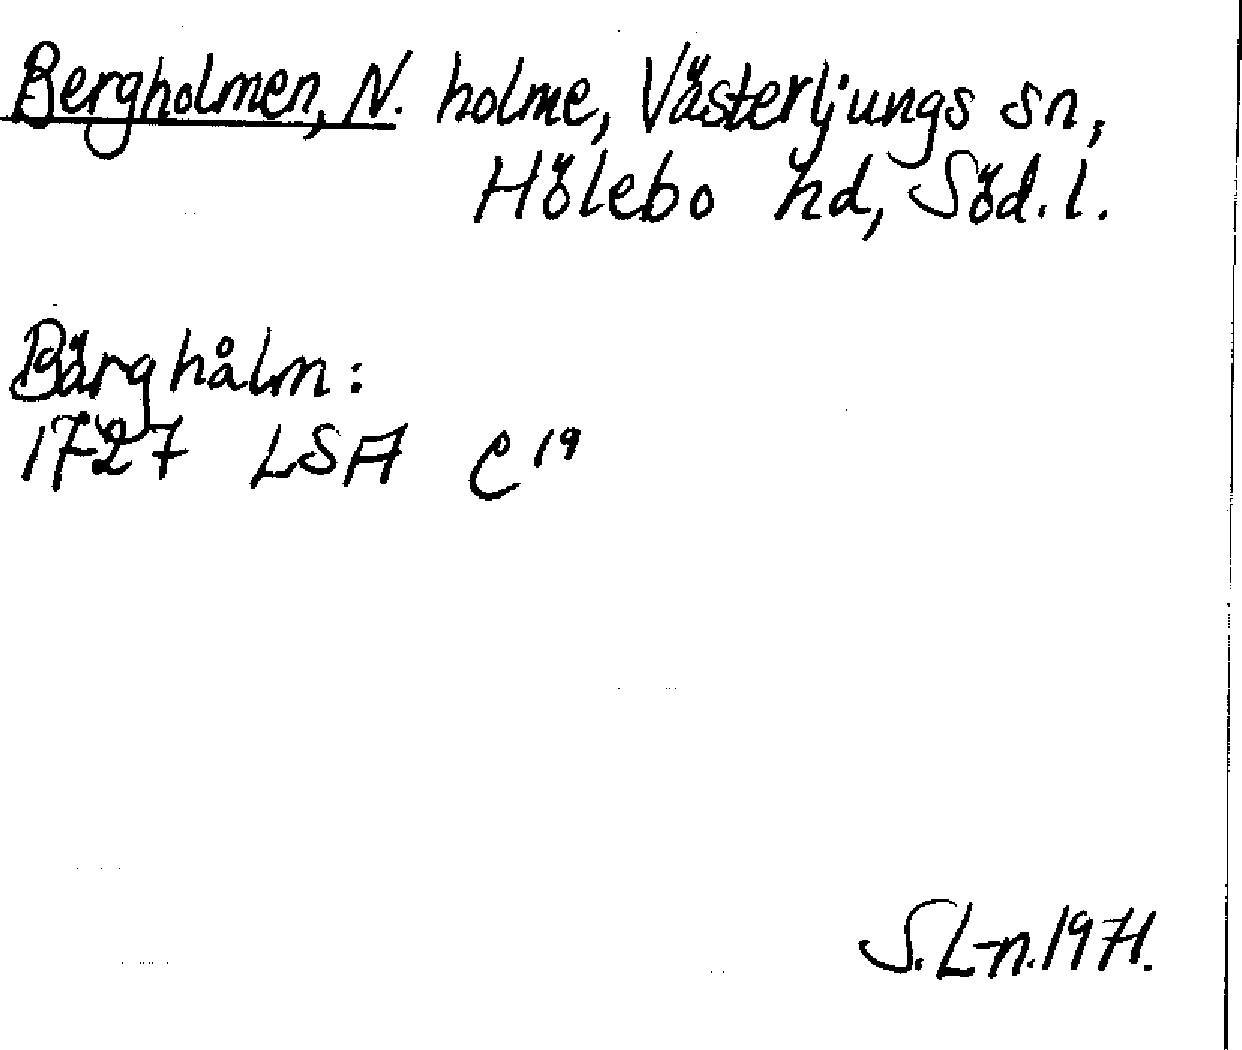 Bergholmen, N. holme, Västerljungs sn,
Hölebo hd, Söd. l.
Bärghålm:
1727 LSA C¹⁹
S. L-n. 1971.